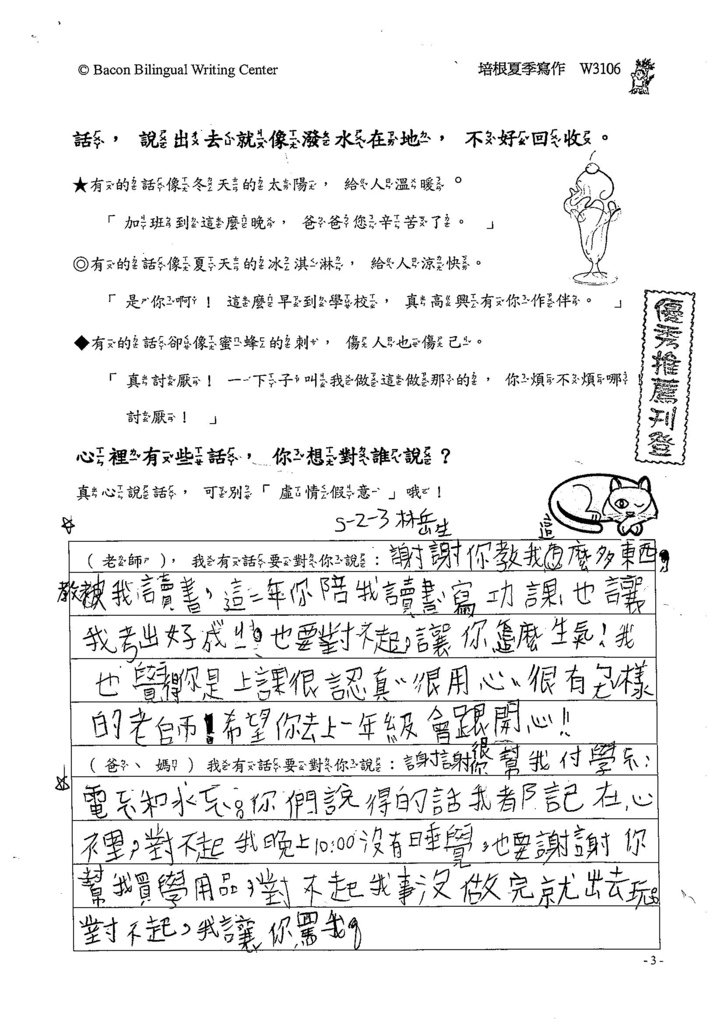 © Bacon Bilingual Writing Center 培根夏季寫作 W3106
話，說出去就像潑水在地，不好回收。
★有的話像冬天的太陽，給人溫暖。
「加班到這麼晚，爸爸您辛苦了。」
◎有的話像夏天的冰淇淋，給人涼快。
「是你啊！這麼早到學校，真高興有你作伴。」
優秀推薦刊登
◆有的話卻像蜜蜂的刺，傷人也傷己。
「真討厭！一下子叫我做這做那的，你煩不煩哪
討厭！」
心裡有些話，你想對誰說？
真心說話，可別「虛情假意」哦！
S-2-3 林岳生
（老師），我有話要對你說：謝謝你教我這麼多東西，
教我讀書，這二年你陪我讀書寫功課也讓
我考出好成 也要對不起，讓你 麼生氣！我
也覺得你是上課很認真“很用心”很有 樣
的老師！希望你去上一年級會 開心!!
（爸、媽）我有話要對你說：謝謝你幫我付學
電 和水 你們說得的話我都記在心
裡，對不起我晚上10:00沒有睡覺，也要謝謝你
幫我買學用品，對不起我事沒做完就出去玩。
對不起，我讓你罵我
-3-